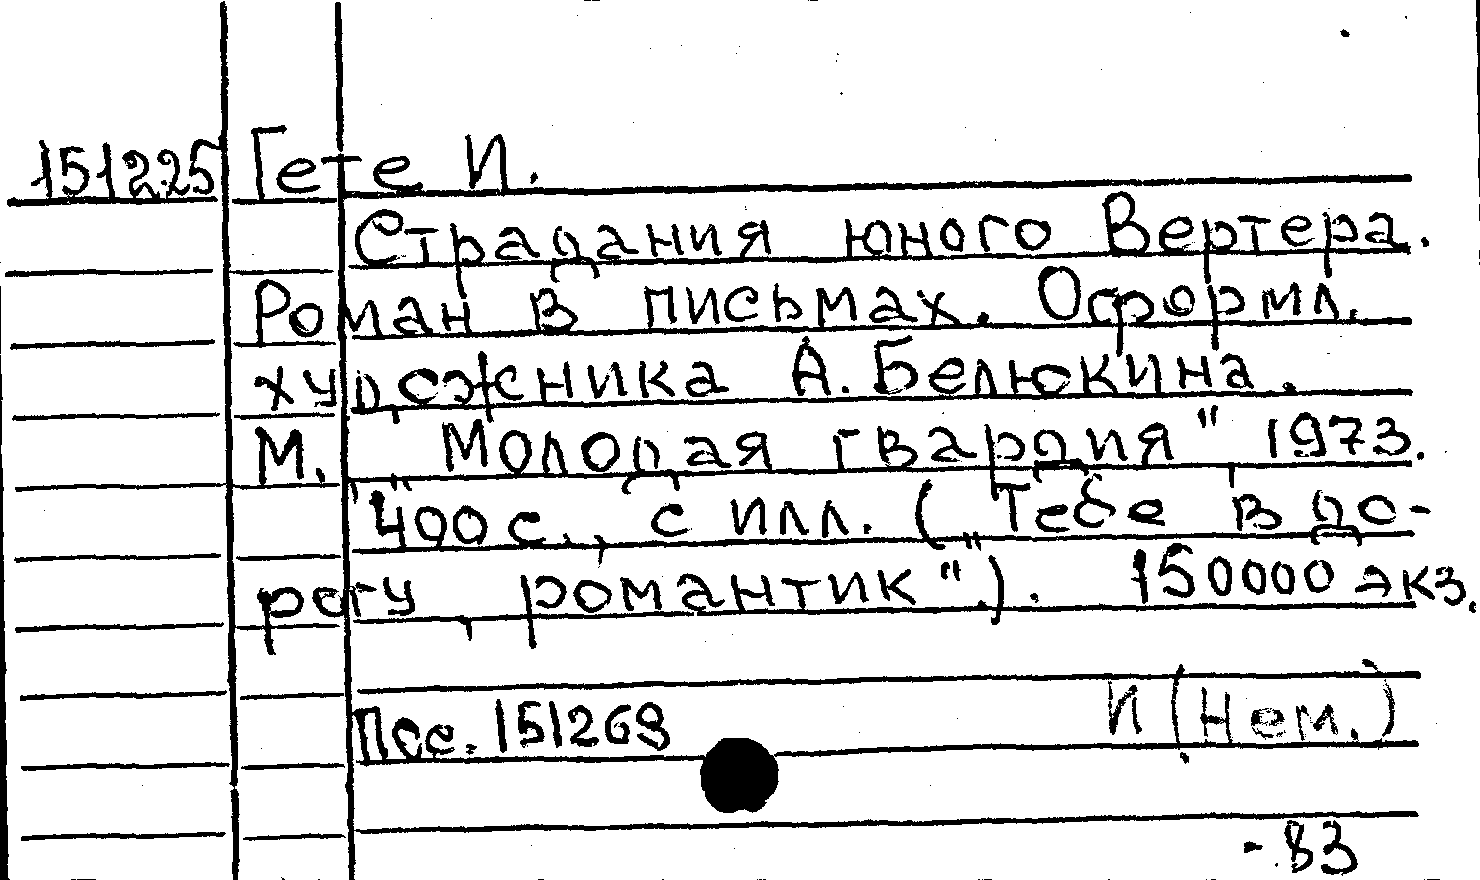 151225 Гете И.
Страдания юного Вертера.
Роман в письмах. Оформл.
художника А. Белюкина.
М., "Молодая гвардия" 1973.
400 с., с илл. ("Тебе в до-
рогу, романтик"). 150000 экз.
151269 И (Нем.)
-83